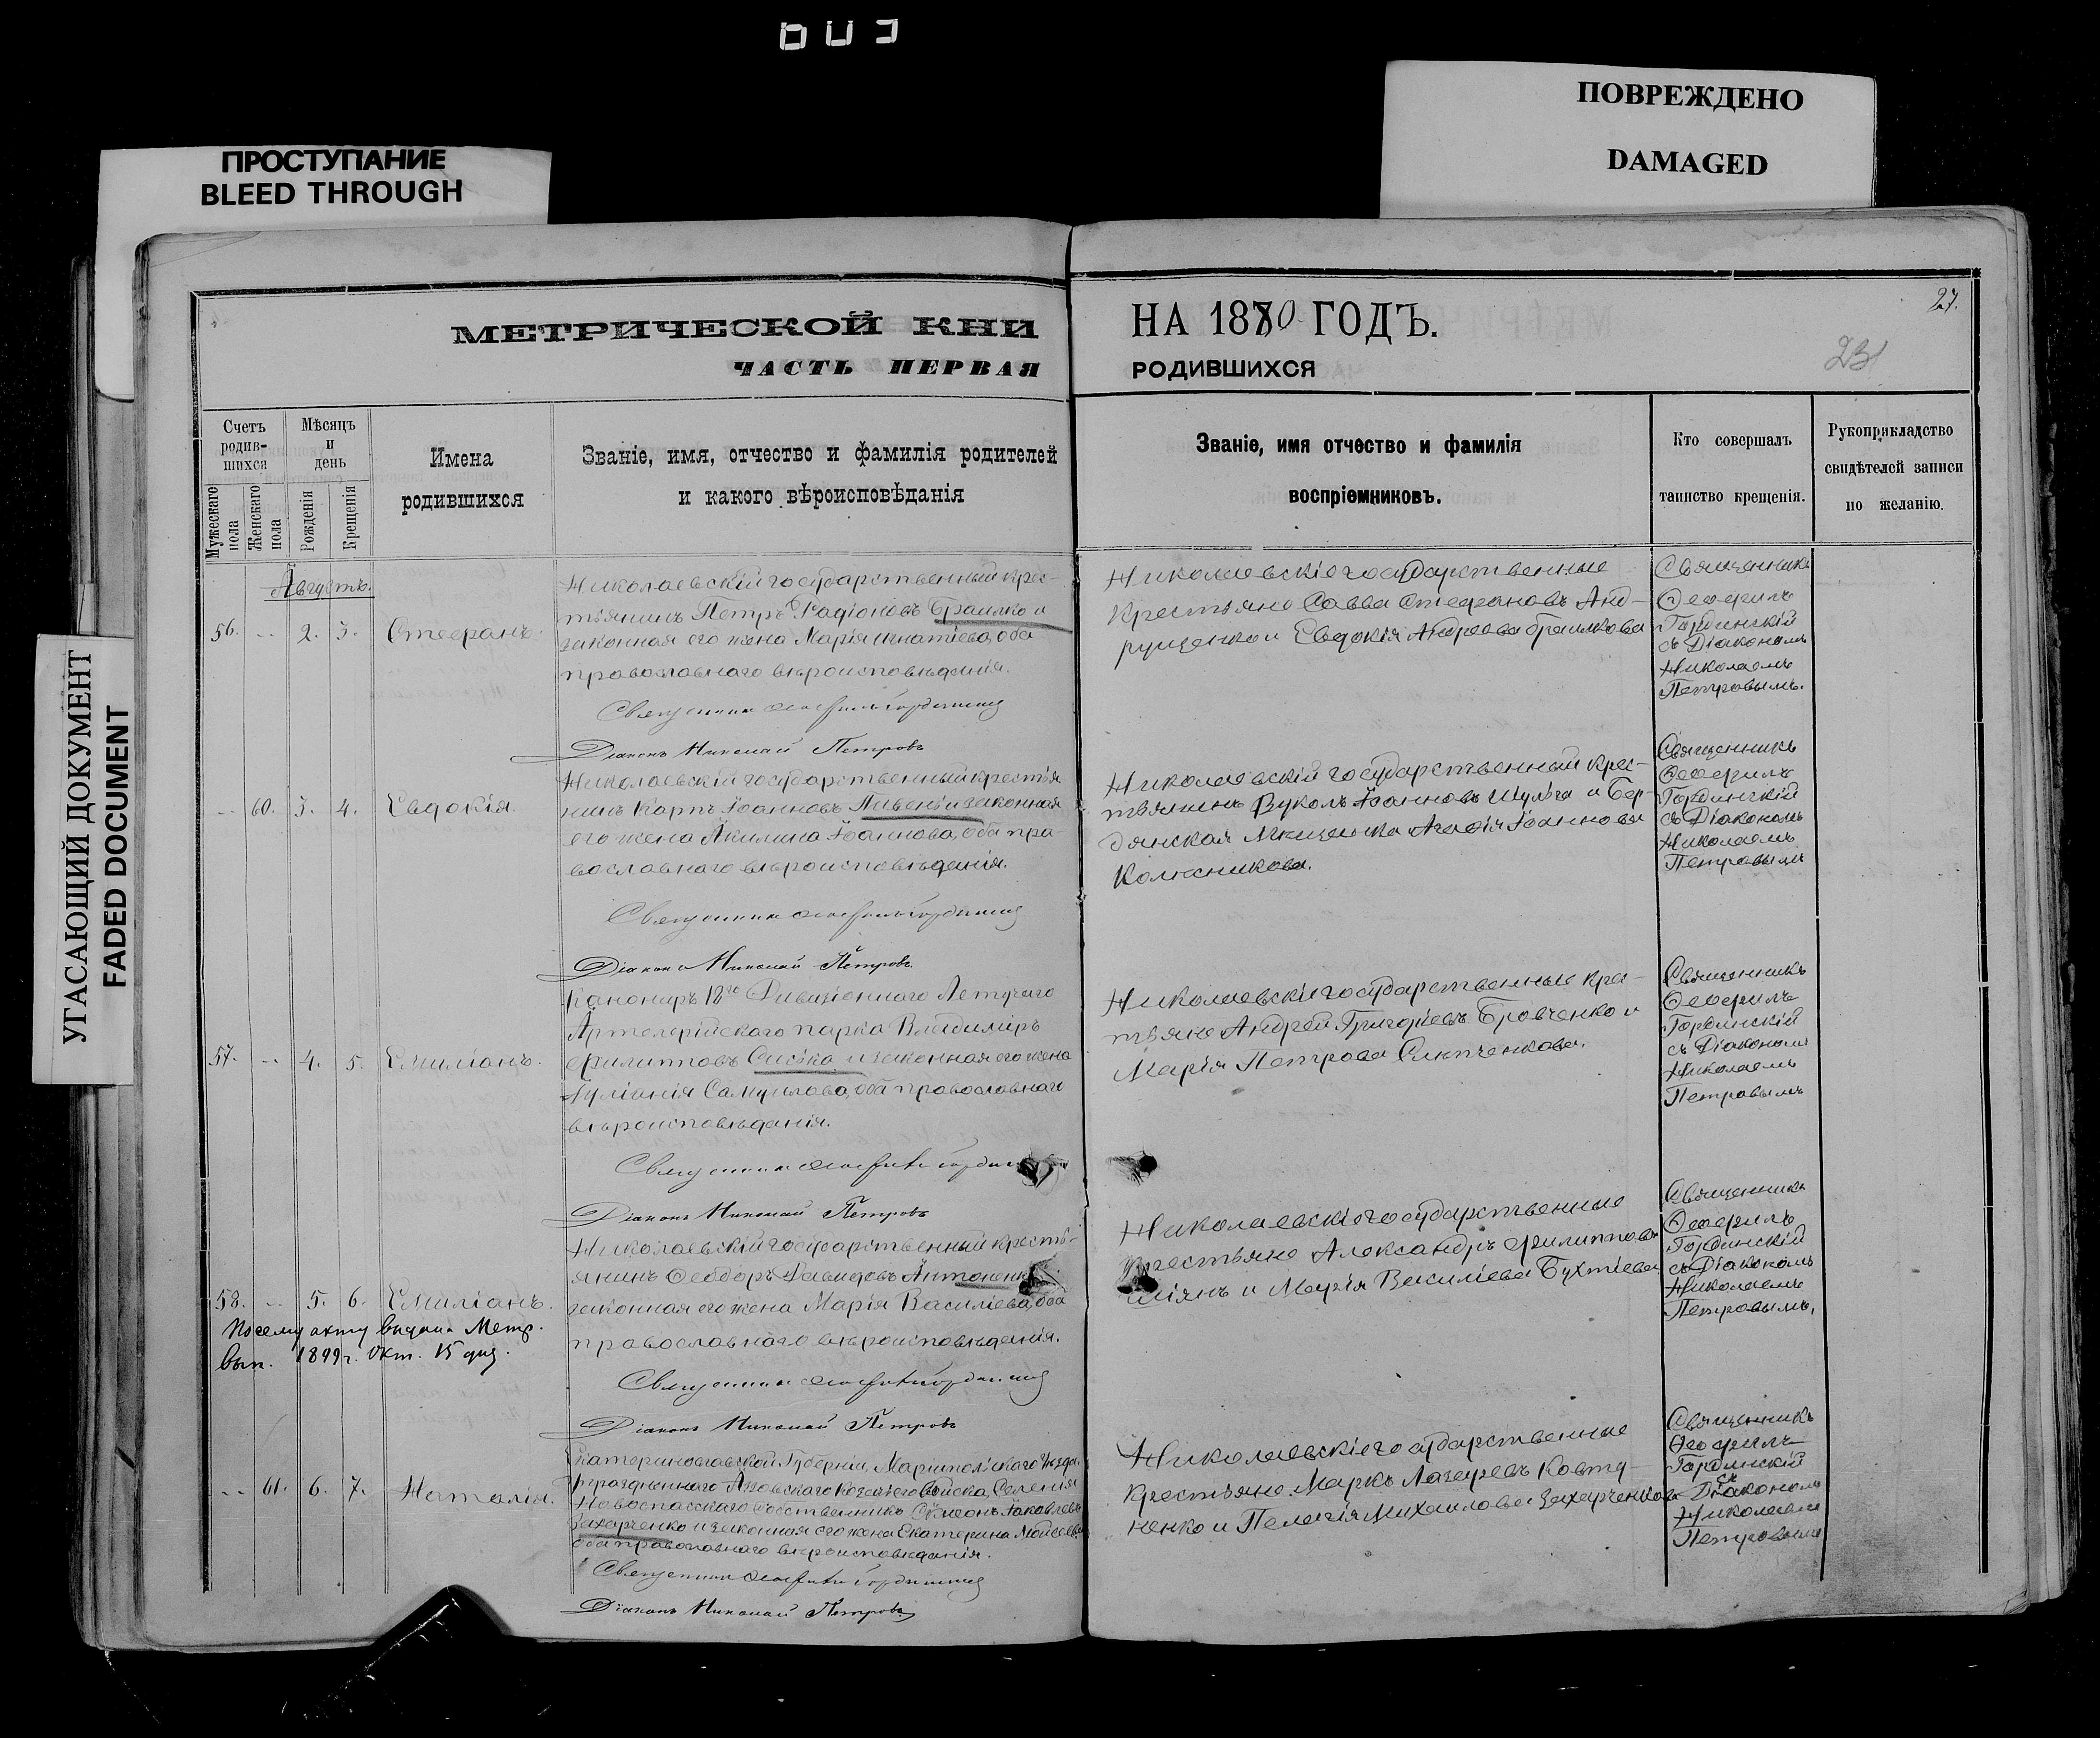 ПРОСТУПАНИЕ
BLEED THROUGH
ПОВРЕЖДЕНО
DAMAGED
УГАСАЮЩИЙ ДОКУМЕНТ
FADED DOCUMENT
МЕТРИЧЕСКОЙ КНИ
ЧАСТЬ ПЕРВАЯ
НА 1880 ГОДЪ.
РОДИВШИХСЯ
27.
Счетъ родив-шихся
Мужескаго пола
Женскаго пола
Мѣсяцъ и день
Рожденія
Крещенія
Имена родившихся
Званіе, имя, отчество и фамилія родителей
и какого вѣроисповѣданія
Званіе, имя отчество и фамилія
воспріемниковъ.
Кто совершалъ
таинство крещенія.
Рукоприкладство
свидѣтелей записи
по желанію.
Августъ.
56. -- 2. 3. Стефанъ.
Николаевскій государственный крес-
тьянинъ Петръ Радіоновъ Браилко и
законная его жена Марія Игнатіева, оба
православнаго вѣроисповѣданія.
Священникъ Ѳеофилъ Гординскій
Діаконъ Николай Петровъ
Николаевскіе государственные
крестьяне Савва Стефановъ Анд-
рущенко и Евдокія Андреева Браилкова
Священникъ
Ѳеофилъ
Гординскій
съ Діакономъ
Николаемъ
Петровымъ.
-- 60. 3. 4. Евдокія.
Николаевскій государственный крестья
нинъ Карпъ Іоанновъ Пивень и законная
его жена Акилина Іоаннова, оба пра-
вославнаго вѣроисповѣданія.
Священникъ Ѳеофилъ Гординскій
Діаконъ Николай Петровъ.
Николаевскій государственный крес-
тьянинъ Вуколъ Іоанновъ Шульга и Бер-
дянская Мѣщанка Агафія Іоаннова
Колесникова.
Священникъ
Ѳеофилъ
Гординскій
съ Діакономъ
Николаемъ
Петровымъ
57. -- 4. 5. Емиліанъ.
Канониръ 18го Дивизіоннаго Летучаго
Артелерійскаго парка Владиміръ
Филипповъ и законная его жена
Іуліанія Самуилова, оба православнаго
вѣроисповѣданія.
Священникъ Ѳеофилъ
Діаконъ Николай Петровъ
Николаевскіе государственные крес-
тьяне Андрей Григоріевъ Бровченко и
Марія Петрова
Священникъ
Ѳеофилъ
Гординскій
съ Діакономъ
Николаемъ
Петровымъ
58. -- 5. 6. Емиліанъ.
По сему акту выдана Метр.
вып. 1899 г. Окт. 15 дня.
Николаевскій государственный кресть-
янинъ Ѳеодоръ Давидовъ
законная его жена Марія Василіева, оба
православнаго вѣроисповѣданія.
Священникъ Ѳеофилъ Гординскій
Діаконъ Николай Петровъ
Николаевскіе государственные
крестьяне Александръ Филипповъ
и Марія Василіева Бухтіева
Священникъ
Ѳеофилъ
Гординскій
съ Діакономъ
Николаемъ
Петровымъ.
-- 61. 6. 7. Наталія.
Екатеринославской Губерніи, Маріупольскаго Уезда,
Упраздненнаго Азовскаго Казачьего Войска, Селенія
Новоспасскаго собственникъ Сумеонъ Іаковлевъ
Захарченко и законная его жена Екатерина Моисеева
оба православнаго вѣроисповѣданія.
Священникъ Ѳеофилъ Гординскій
Діаконъ Николай Петровъ
Николаевскіе государственные
крестьяне Маркъ Лазаревъ Ковту-
ненко и Пелагія Михаилова Захарченкова
Священникъ
Ѳеофилъ
Гординскій
съ Діакономъ
Николаемъ
Петровымъ